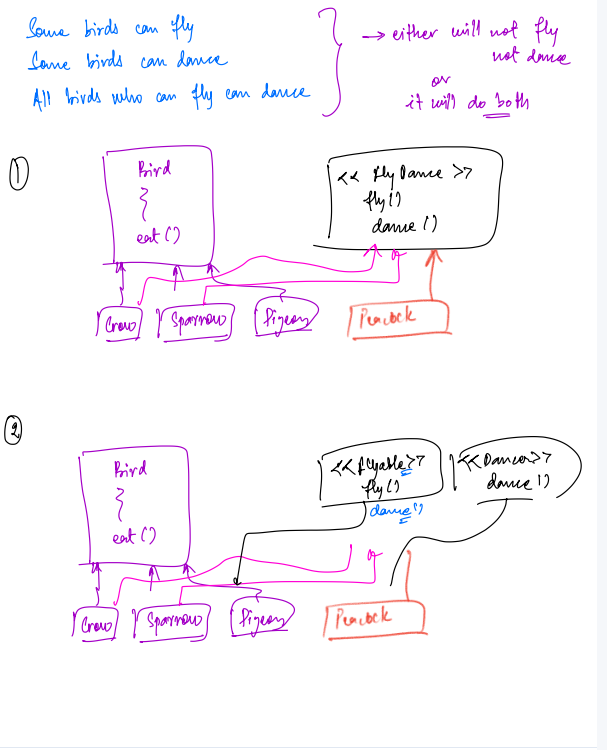 Some birds can fly
Some birds can dance
All birds who can fly can dance
→ either will not fly
not dance
or
it will do both
1
Bird
{
eat ()
<< Fly Dance >>
fly ()
dance ()
Crow
Sparrow
Pigeon
Peacock
2
Bird
{
eat ()
<< Flyable >>
fly ()
dance ()
<< Dancer >>
dance ()
Crow
Sparrow
Pigeon
Peacock